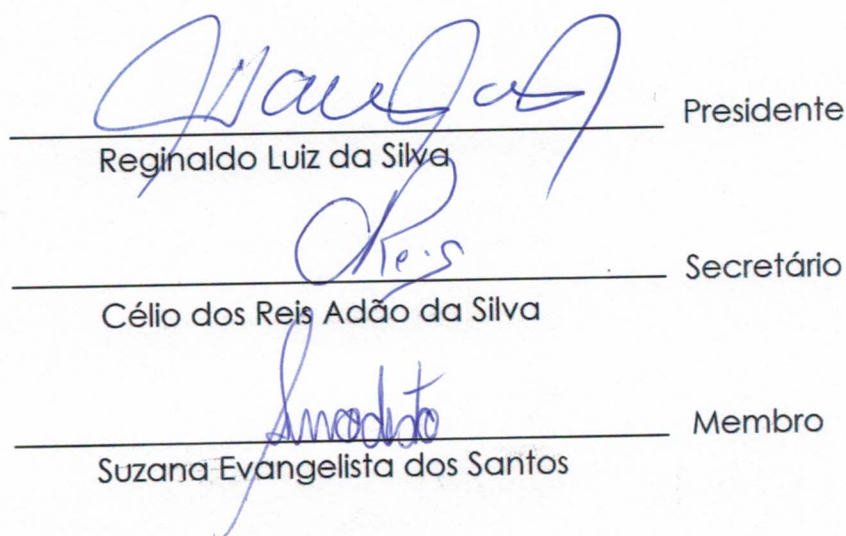 Presidente
Reginaldo Luiz da Silva
CReis
Secretário
Célio dos Reis Adão da Silva
Membro
Suzana Evangelista dos Santos